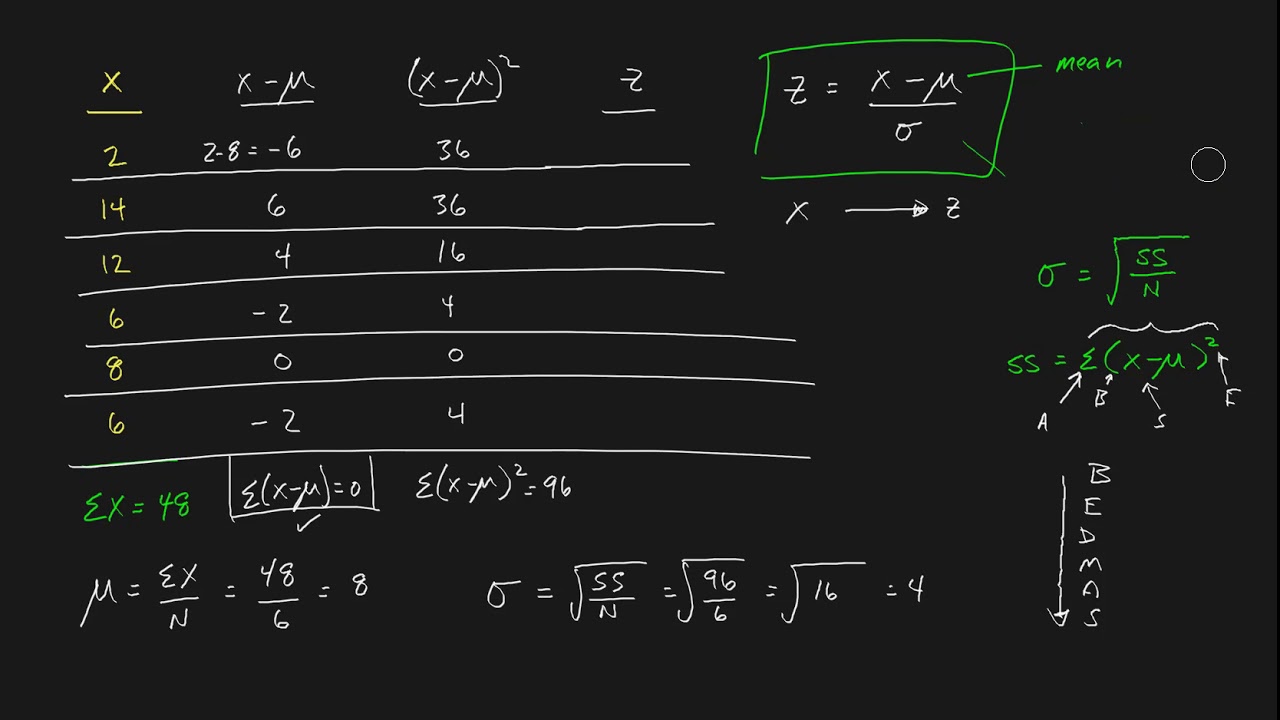 X x-μ (x-μ)² z
2 2-8=-6 36
14 6 36
12 4 16
6 -2 4
8 0 0
6 -2 4
ΣX=48 Σ(x-μ)=0 ✓ Σ(x-μ)²=96
μ = ΣX/N = 48/6 = 8
σ = √(SS/N) = √(96/6) = √16 = 4
z = (x-μ)/σ mean
X → z
σ = √(SS/N)
SS = Σ(x-μ)²
A B S E
B
E
D
M
A
S